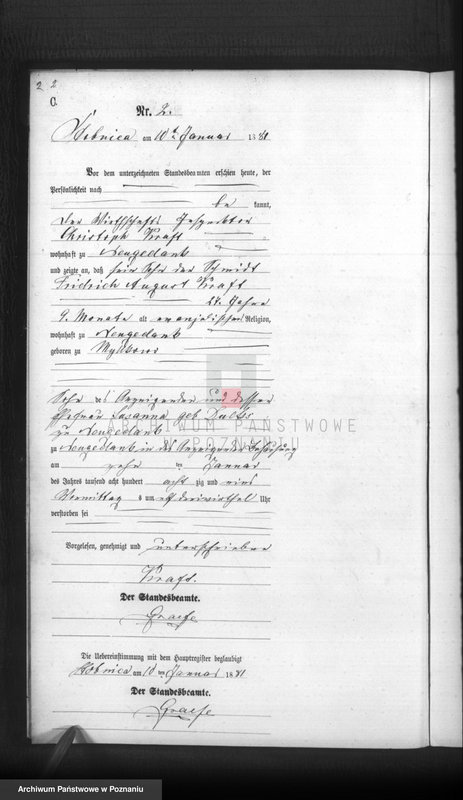 2 2
C.
Nr. 2.
am 10ten Januar 1881
Vor dem unterzeichneten Standesbeamten erschien heute, der
Persönlichkeit nach
be kannt,
der Wirthschafts Inspektor
Christoph Kraft
wohnhaft zu Neugedank
und zeigte an, daß sein Sohn der Schmidt
Fridrich August Kraft
24 Jahre
9 Monate alt evangelischer Religion,
wohnhaft zu Neugedank
geboren zu
Sohn des Anzeigenden und dessen
Ehefrau Susanna geb.
zu Neugedank
zu Neugedank in des Anzeigenden Behausung
am zehn ten Januar
des Jahres tausend acht hundert acht zig und eins
Vormittag s um elf dreiviertel Uhr
verstorben sei
Vorgelesen, genehmigt und unterschrieben
Kraft.
Der Standesbeamte.
Graefe
Die Uebereinstimmung mit dem Hauptregister beglaubigt
am 10 ten Januar 1881
Der Standesbeamte.
Graefe
ARCHIWUM PAŃSTWOWE
W POZNANIU
Archiwum Państwowe w Poznaniu